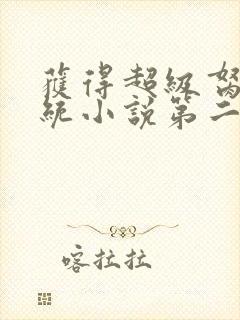 獲得超級
統小說第二
喀拉拉